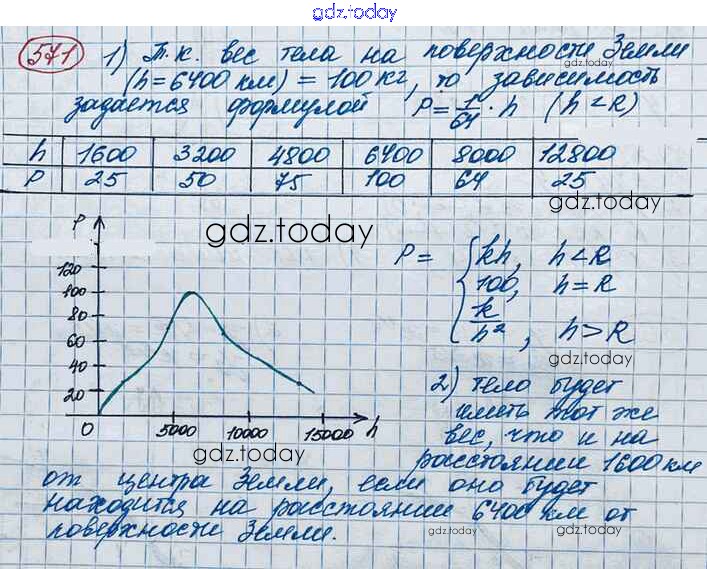 gdz.today
571 1) Т.к. вес тела на поверхности Земли
gdz.today
(h=6400 км) = 100 кг, то зависимость
задаётся формулой P = 1/64 · h (h < R)
gdz.today
h 1600 3200 4800 6400 8000 12800
P 25 50 75 100 64 25
gdz.today
P
gdz.today
120
100
80
60
40
20
0 5000 10000 15000 h
gdz.today
P = { kh, h < R
100, h = R
k/h², h > R
gdz.today
2) тело будет
gdz.today
иметь тот же
вес, что и на
расстоянии 1600 км
gdz.today
от центра Земли, если оно будет
находится на расстоянии 6400 км от
поверхности Земли.
gdz.today
gdz.today